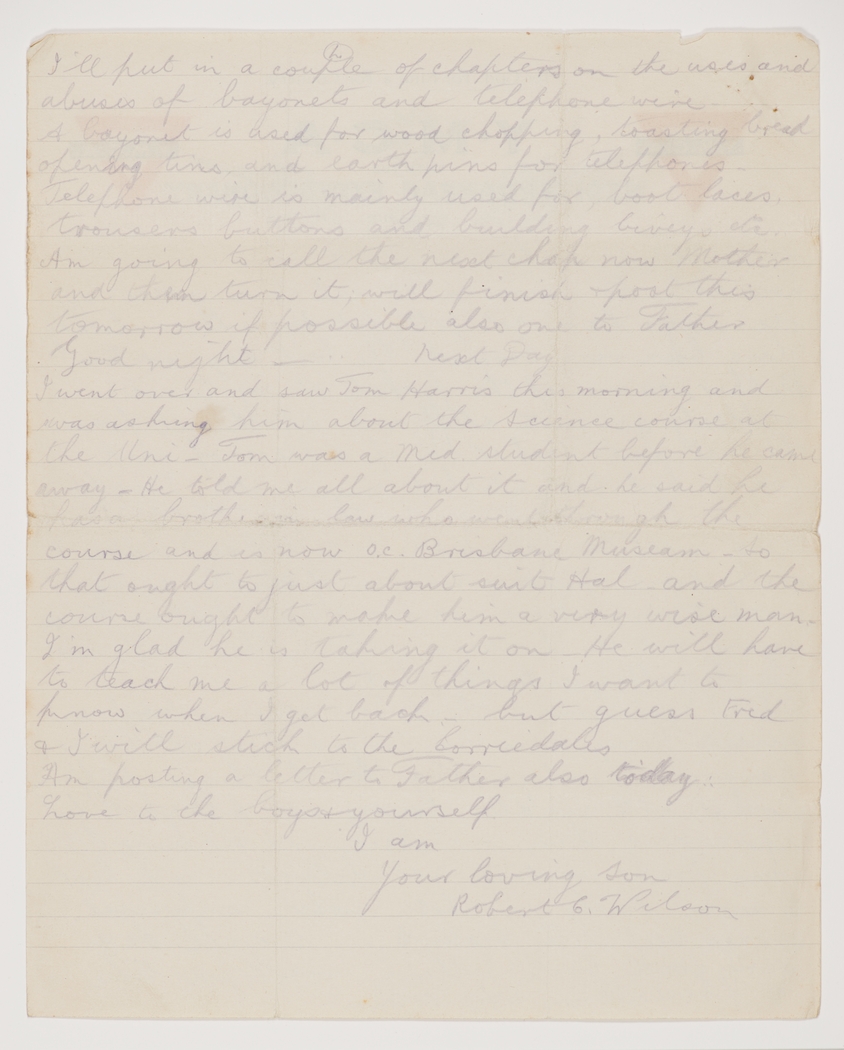 I'll put in a couple of chapters on the uses and
abuses of bayonets and telephone wire
A bayonet is used for wood chopping, toasting bread
opening tins, and earth pins for telephones -
Telephone wire is mainly used for, boot laces,
trousers buttons and building biveys etc.
Am going to call the next chap now Mother
and then turn it, will finish & post this
tomorrow if possible also one to Father
Good night — Next Day
I went over and saw Tom Harris this morning and
was asking him about the Science course at
the Uni - Tom was a Med. student before he came
away - He told me all about it and he said he
has a brother in law who went through the
course and is now o.c. Brisbane Museam - so
that ought to just about suit Hal - and the
course ought to make him a very wise man.
I'm glad he is taking it on - He will have
to teach me a lot of things I want to
know when I get back - but guess Fred
& I will stick to the Corriedales
Am posting a letter to Father also today.
Love to the boys & yourself
I am
Your loving Son
Robert C. Wilson